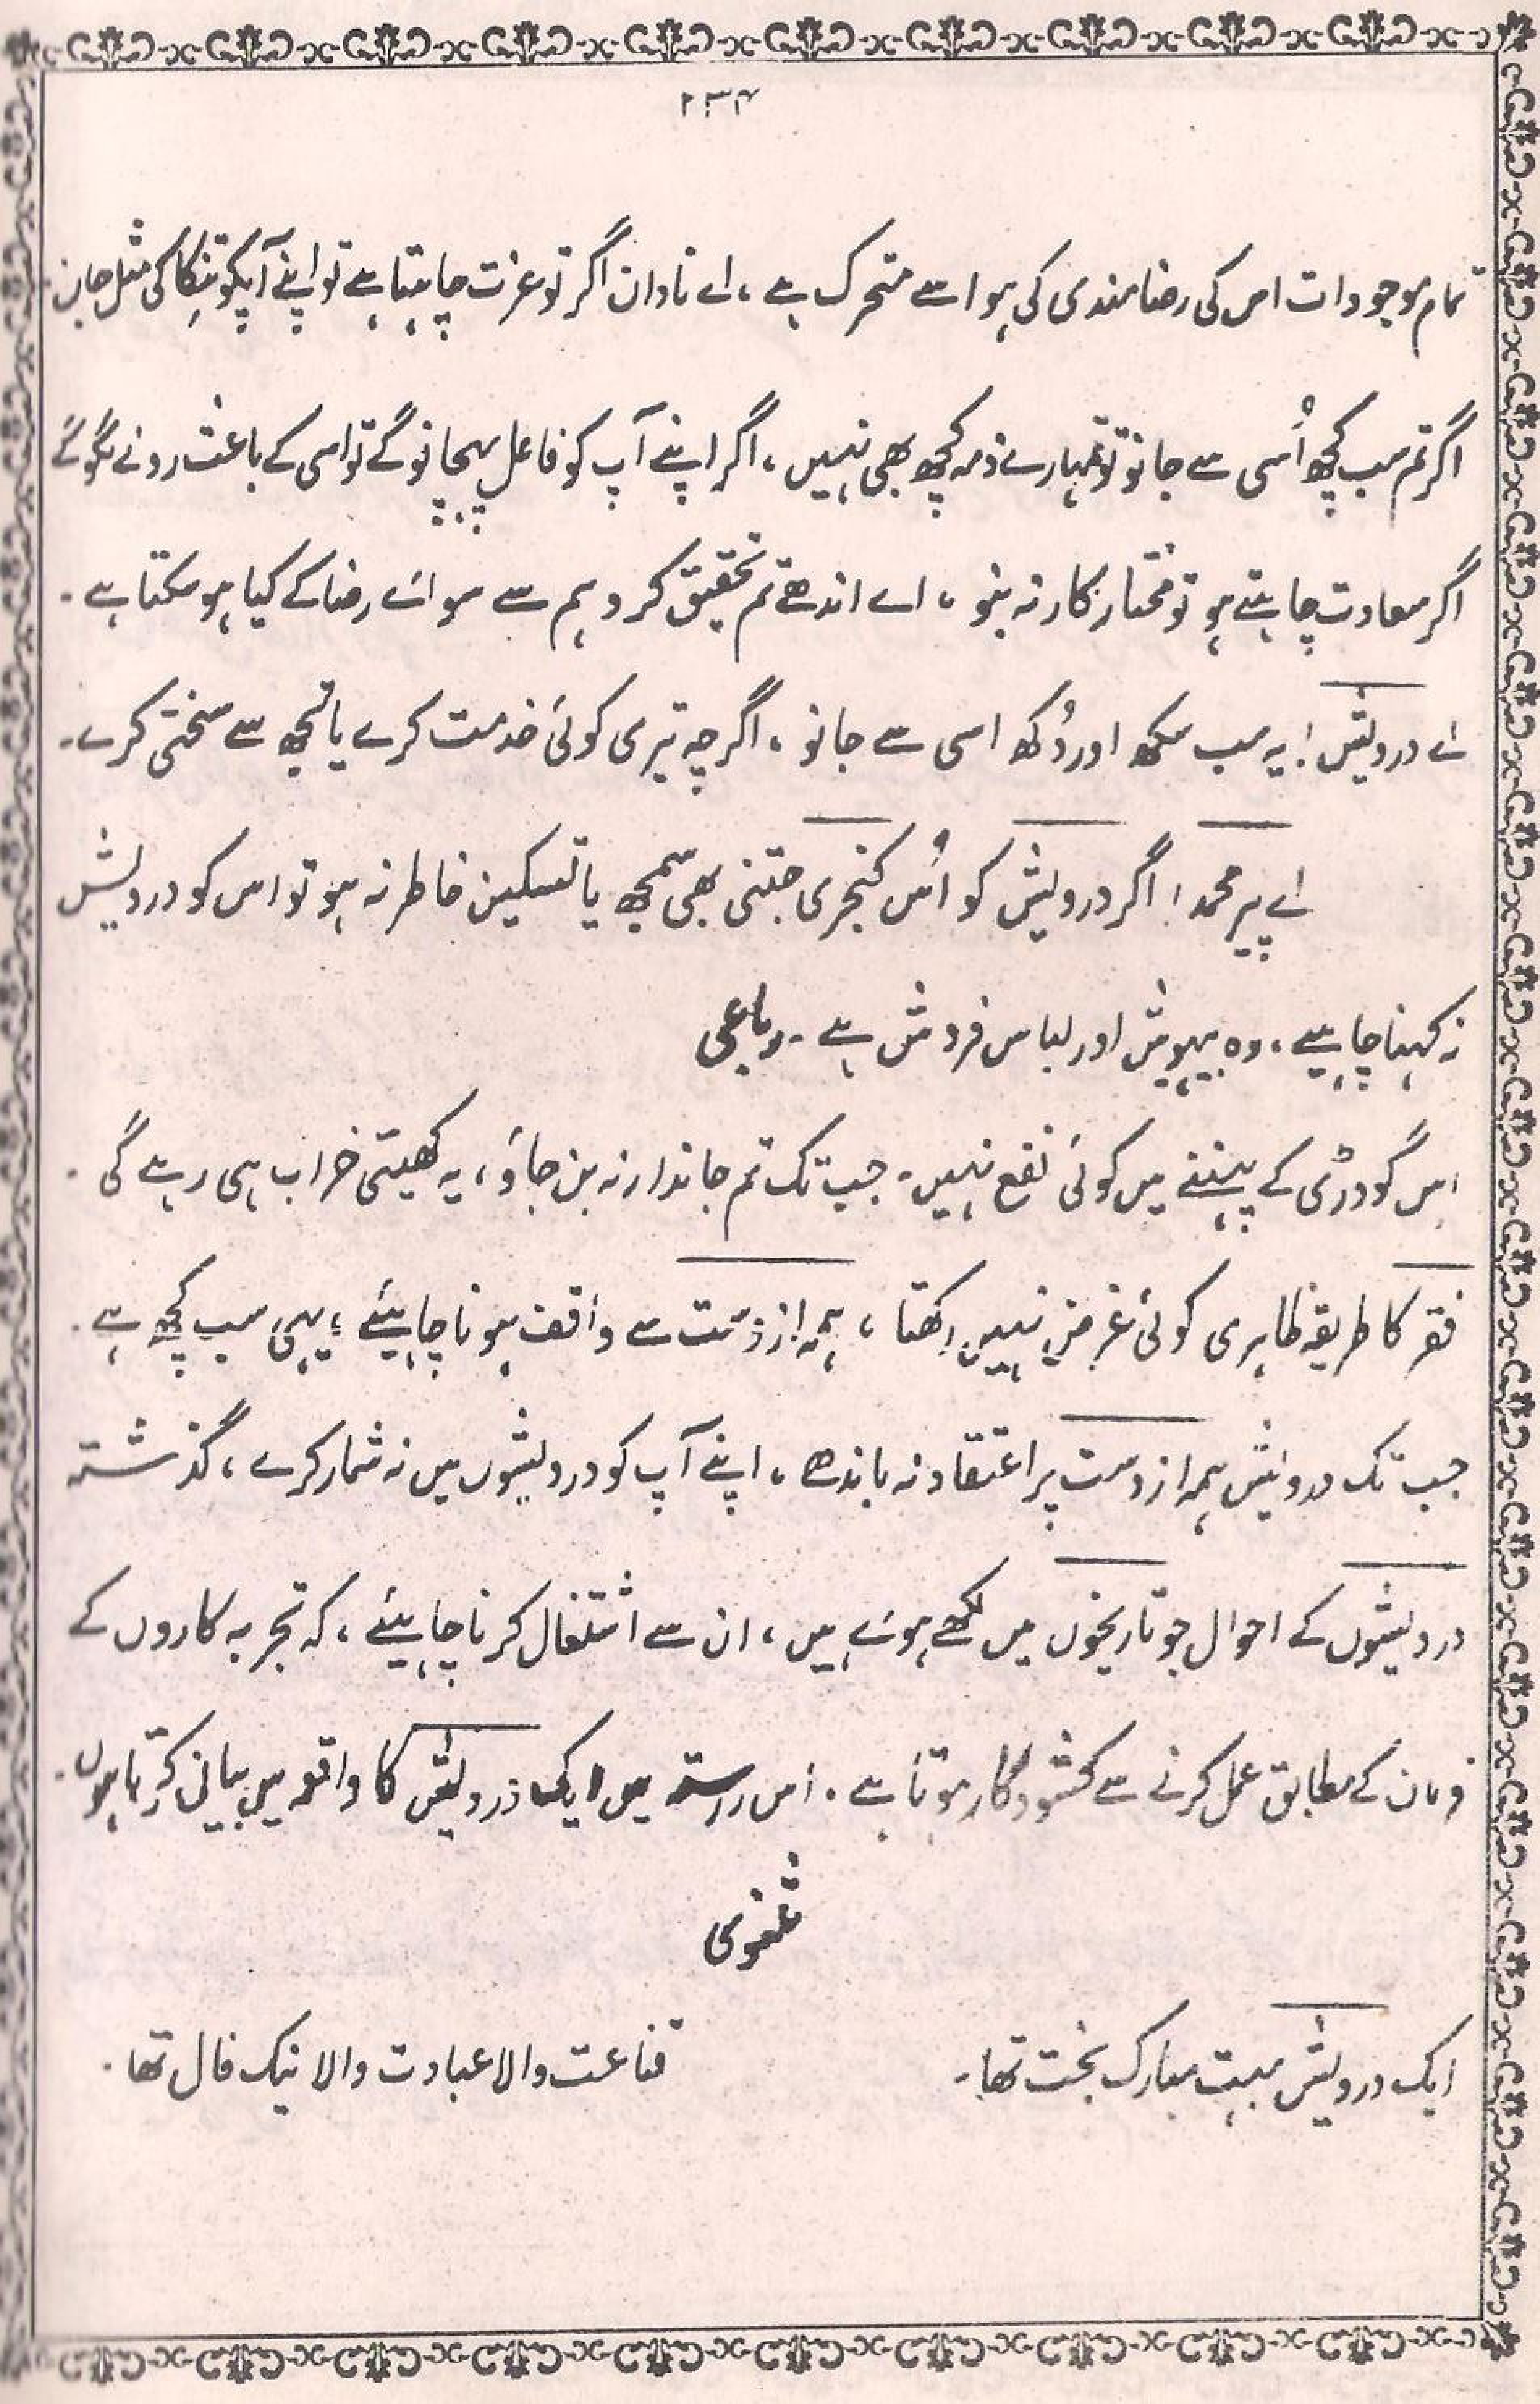 ۲۳۴
تمام موجودات اس کی رضامندی کی ہوا سے متحرک ہے ، اے نادان اگر تو عزت چاہتا ہے تو اپنے آپکو تنکا کی مثل جان
اگر تم سب کچھ اُسی سے جانو تو تمہارے ذمہ کچھ بھی نہیں ، اگر اپنے آپ کو فاعل پہچانو گے تو اسی کے باعث رونے لگو گے
اگر سعادت چاہتے ہو تو مختار کار نہ بنو ، اے اندھے تم تحقیق کرو ہم سے سوائے رضا کے کیا ہو سکتا ہے ۔
اے درویش! یہ سب سکھ اور دُکھ اسی سے جانو ، اگرچہ تیری کوئی خدمت کرے یا تجھ سے سختی کرے ۔
اے پیر محمد! اگر درویش کو اُس کنجری جتنی بھی سمجھ یا تسکین خاطر نہ ہو تو اس کو درویش
نہ کہنا چاہیے ، وہ بیہوش اور لباس فروش ہے ۔ رباعی
اِس گودڑی کے پہننے میں کوئی نفع نہیں ۔ جب تک تم جاندار نہ بن جاؤ ، یہ کھیتی خراب ہی رہے گی ۔
فقر کا طریقہ ظاہری کوئی غرض نہیں رکھتا ، ہمہ از وست سے واقف ہونا چاہیئے ؛ یہی سب کچھ ہے ۔
جب تک درویش ہمہ از وست پر اعتقاد نہ باندھے ، اپنے آپ کو درویشوں میں نہ شمار کرے ، گذشتہ
درویشوں کے احوال جو تاریخوں میں لکھے ہوئے ہیں ، ان سے اشتغال کرنا چاہیئے ، کہ تجربہ کاروں کے
فرمان کے مطابق عمل کرنے سے کشود کار ہوتا ہے ۔ اس رستہ میں ایک درویش کا واقعہ میں بیان کرتا ہوں ۔
مثنوی
ایک درویش بہت مبارک بخت تھا ۔ قناعت والا عبادت والا نیک فال تھا ۔